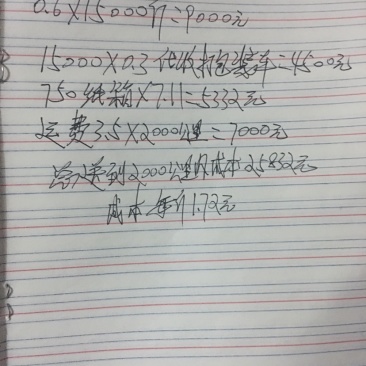 0.6×15000斤=9000元
15000×0.3代收打包装车=4500元
750纸箱×7.11=5332元
运费3.5×2000公里=7000元
总送到2000公里内成本25832元
成本每斤1.72元